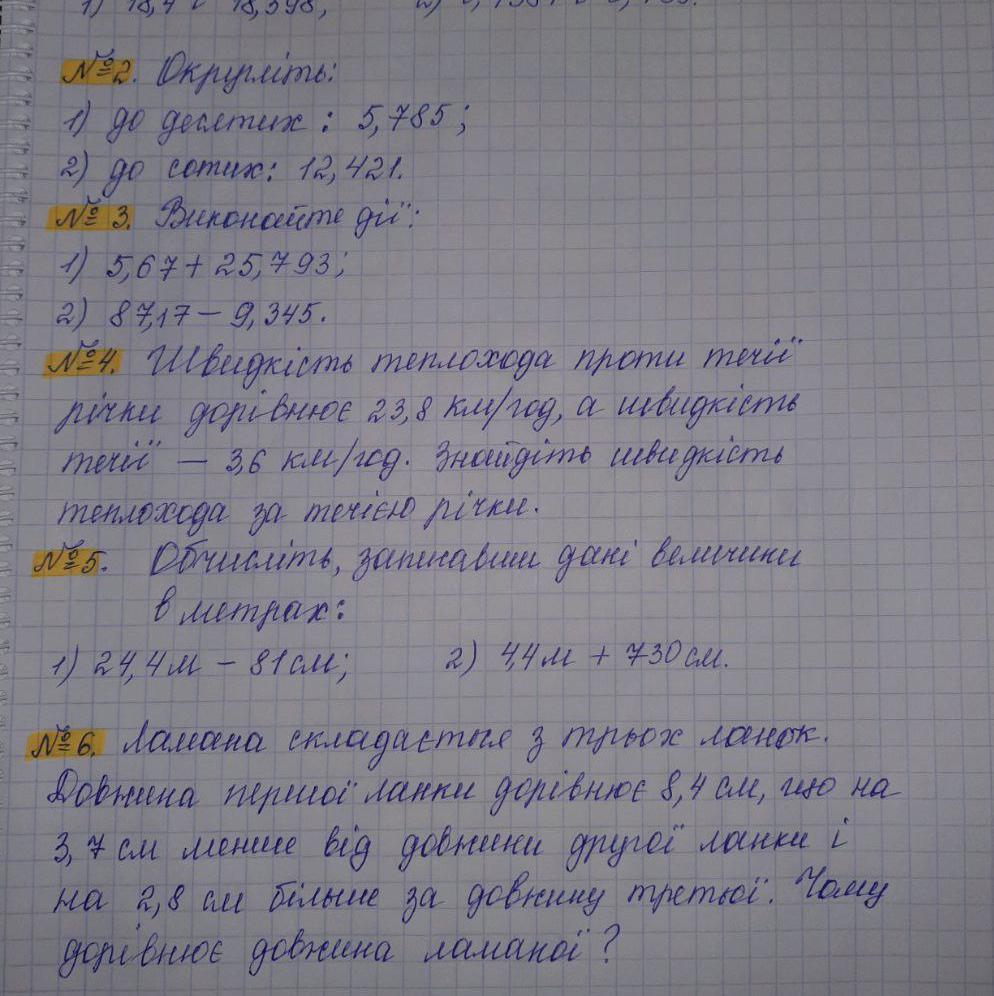 1) 18,4 і 18,398;
№2. Округліть:
1) до десятих: 5,785;
2) до сотих: 12,421.
№ 3. Виконайте дії:
1) 5,67 + 25,793;
2) 87,17 – 9,345.
№4. Швидкість теплохода проти течії
річки дорівнює 23,8 км/год, а швидкість
течії – 3,6 км/год. Знайдіть швидкість
теплохода за течією річки.
№5. Обчисліть, записавши дані величини
в метрах:
1) 24,4м – 81см; 2) 4,4м + 730см.
№6. Ламана складається з трьох ланок.
Довжина першої ланки дорівнює 8,4 см, що на
3,7 см менше від довжини другої ланки і
на 2,8 см більше за довжину третьої. Чому
дорівнює довжина ламаної?